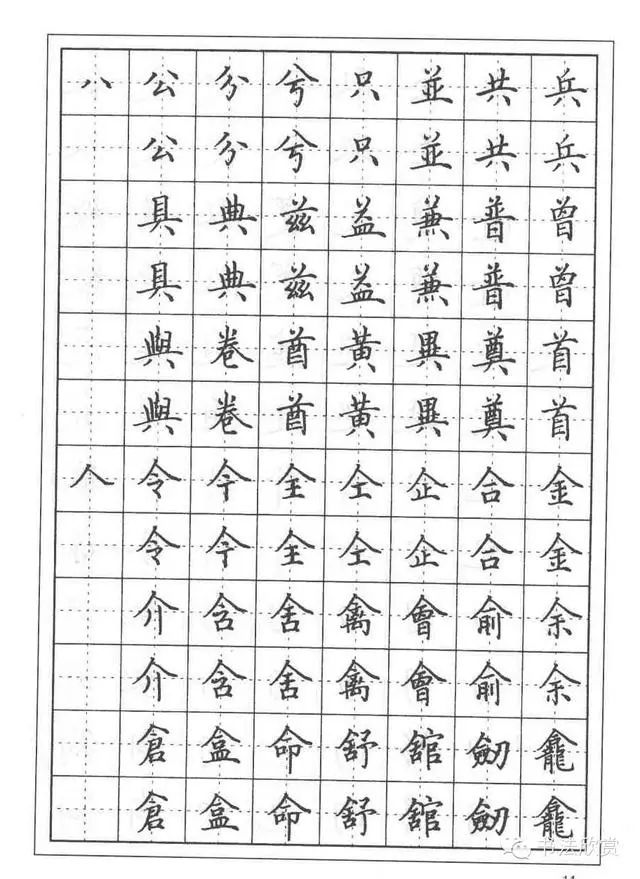 八公分兮只並共兵
公分兮只並共兵
具典茲益兼普曾
具典茲益兼普曾
與卷酋黃異奠首
與卷酋黃異奠首
人令今全仝企合金
令今全仝企合金
介含舍禽會俞余
介含舍禽會俞余
倉盒命舒舘劒龕
倉盒命舒舘劒龕
书法欣赏